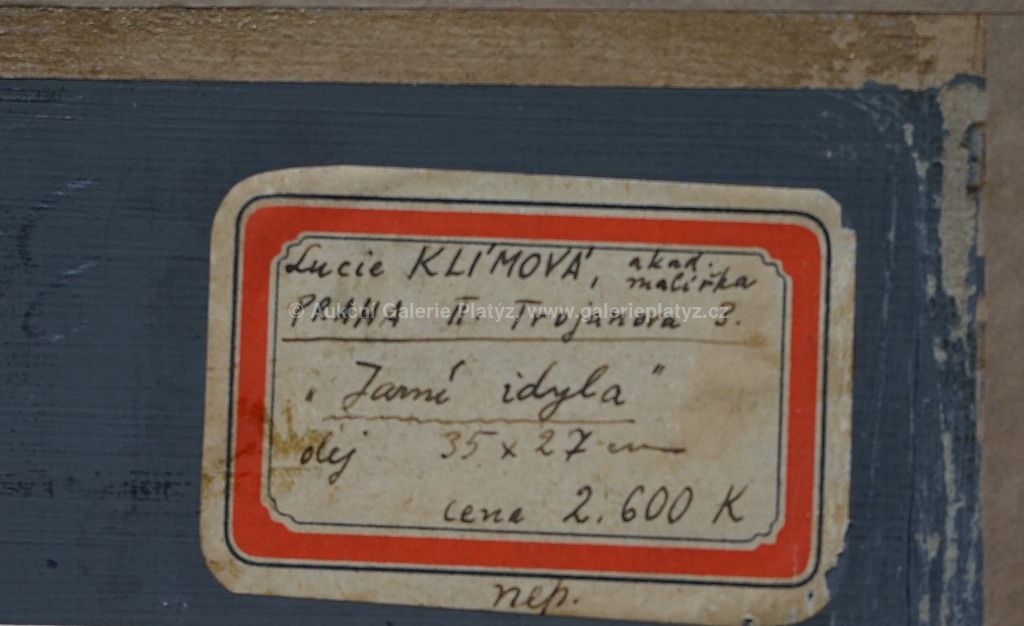 Lucie KLÍMOVÁ, akad. malířka
PRAHA II. Trojanova 3.
© Aukční Galerie Platýz, www.galerieplatyz.cz
„Jarní idyla"
olej 35 x 27 cm
cena 2.600 K
nep.